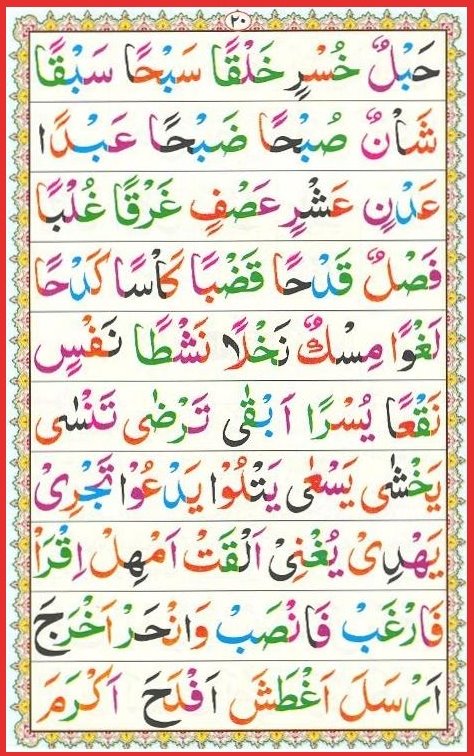 ٢٠
حَبْلٌ خُسْرٍ خَلْقًا سَبْحًا سَبْقًا
شَأْنٌ صُبْحًا ضَبْحًا عَبْدًا
عَدْنٍ عَشْرٍ عَصْفٍ غَرْقًا غُلْبًا
فَصْلٌ قَدْحًا قَضْبًا كَأْسًا كَدْحًا
لَغْوًا مِسْكٌ نَخْلًا نَشْطًا نَفْسٍ
نَقْعًا يُسْرًا اَبْقٰى تَرْضٰى تَنْسٰى
يَخْشٰى يَسْعٰى يَتْلُوْا يَدْعُوْا تَجْرِىْ
يَهْدِىْ يُغْنِىْ اَلْقَتْ اَمْهِلْ اِقْرَاْ
فَارْغَبْ فَانْصَبْ وَانْحَرْ اَخْرَجَ
اَرْسَلَ اَغْطَشَ اَفْلَحَ اَكْرَمَ